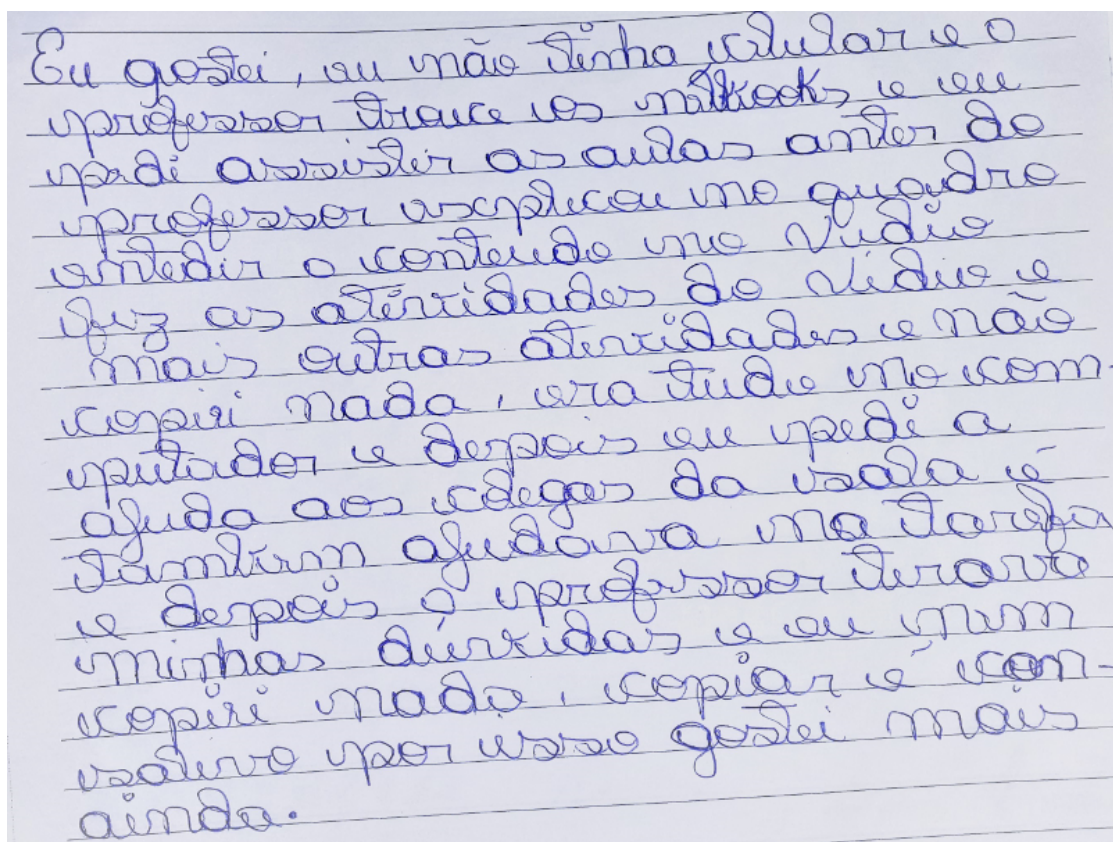 Eu gostei, eu não tinha celular e o
professor trouce os netbooks e eu
pedi assistir as aulas anter do
professor explicou no quadro
entedir o conteudo no vidio
fiz as atividades do vidio e
mais outras atividades e não
copiei nada, era tudo no com-
putador e depois eu pedi a
ajuda aos colegas da sala é
tambem ajudava na tarefa
e depois o professor tirava
minhas dúvidas e eu nem
copiei nada, copiar e é can-
sativo por isso gostei mais
ainda.